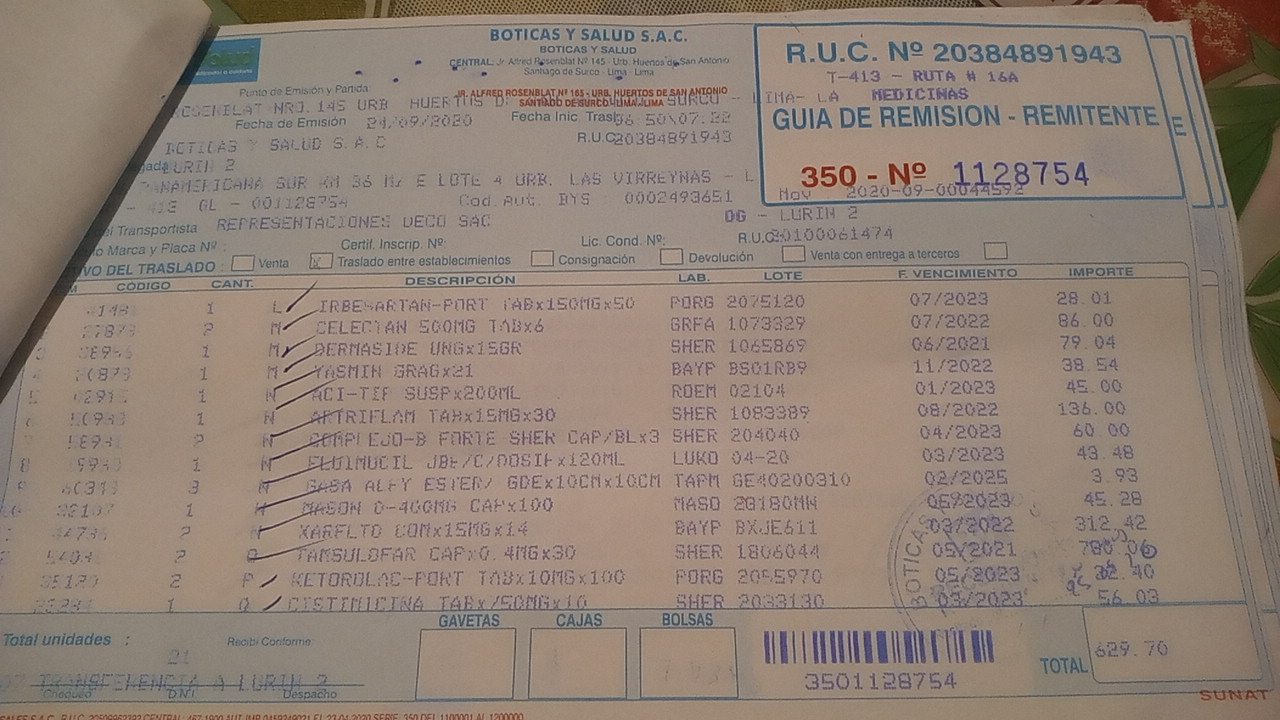 BOTICAS Y SALUD S.A.C.
BOTICAS Y SALUD
CENTRAL: Jr. Alfred Rosenblat Nº 145 - Urb. Huertos de San Antonio
Santiago de Surco - Lima - Lima
R.U.C. Nº 20384891943
T-413 - RUTA # 16A
MEDICINAS
GUIA DE REMISION - REMITENTE
350 - Nº 1128754
Punto de Emisión y Partida:
JR. ALFRED ROSENBLAT Nº 165 - URB. HUERTOS DE SAN ANTONIO
SANTIAGO DE SURCO - LIMA - LIMA
ROSENBLAT NRO. 145 URB HUERTOS D SURCO - LIMA- LA
Fecha de Emisión : 21/09/2020 Fecha Inic. Trasl
BOTICAS Y SALUD S.A.C R.U.C. 20384891943
LURIN 2
PANAMERICANA SUR KM 36 Mz E LOTE 4 URB. LAS VIRREYNAS - L
- 413 GL - 001128754 Cod.Aut. BYS 0002493651 Mov 2020-09-00044592
el Transportista REPRESENTACIONES DECO SAC OG - LURIN 2
Marca y Placa Nº : Certif. Inscrip. Nº: Lic. Cond. Nº: R.U.C. 20100061474
IVO DEL TRASLADO : Venta Traslado entre establecimientos Consignación Devolución Venta con entrega a terceros
CÓDIGO CANT. DESCRIPCIÓN LAB. LOTE F. VENCIMIENTO IMPORTE
1 L IRBESARTAN-PORT TABx150MGx50 PORG 2075120 07/2023 28.01
2 M CELECTAN 500MG TABx6 GRFA 1073329 07/2022 86.00
1 M DERMASIDE UNGx15GR SHER 1065869 06/2021 79.04
1 M YASMIN GRAGx21 BAYP BS01RB9 11/2022 38.54
1 N ACI-TIP SUSPx200ML ROEM 02104 01/2023 45.00
1 N ARTRIFLAM TABx15MGx30 SHER 1083389 08/2022 136.00
2 N COMPLEJO-B FORTE SHER CAP/BLx3 SHER 204040 04/2023 60.00
1 N FLUIMUCIL JBE/C/DOSIFx120ML LUKO 04-20 03/2023 43.48
3 N GASA ALFY ESTER/ GDEx10CMx10CM TAPM GE40200310 02/2025 3.93
1 MASON D-400MG CAPx100 MASO 2G180MW 06/2023 45.28
2 N XARELTO COMx15MGx14 BAYP BXJE611 03/2022 312.42
2 TAMSULOFAR CAPx0.4MGx30 SHER 1806044 05/2021
2 P KETOROLAC-PORT TABx10MGx100 PORG 2055970 05/2023
1 Q CISTIMICINA TABx750MGx10 SHER 2033130 03/2023 56.03
BOTICAS
Total unidades : 21 Recibí Conforme: GAVETAS CAJAS BOLSAS
3501128754
TOTAL 629.70
TRANSFERENCIA A LURIN 2
Chequeo D.N.I. Despacho
SUNAT